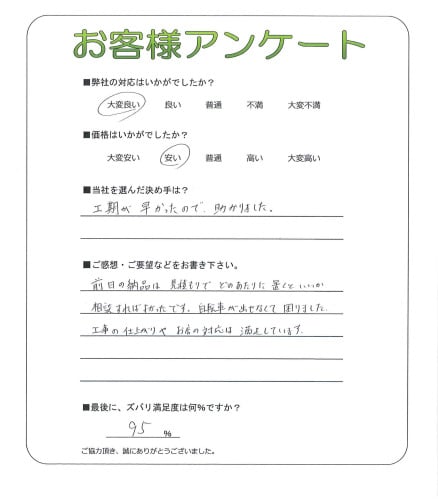 お客様アンケート
■弊社の対応はいかがでしたか？
大変良い 良い 普通 不満 大変不満
■価格はいかがでしたか？
大変安い 安い 普通 高い 大変高い
■当社を選んだ決め手は？
工期が早かったので、助かりました。
■ご感想・ご要望などをお書き下さい。
前日の納品は見積もりでどのあたりに置くといいか
相談すればよかったです。自転車が出せなくて困りました。
工事の仕上がりやお店の対応は満足しています。
■最後に、ズバリ満足度は何％ですか？
95 ％
ご協力頂き、誠にありがとうございました。